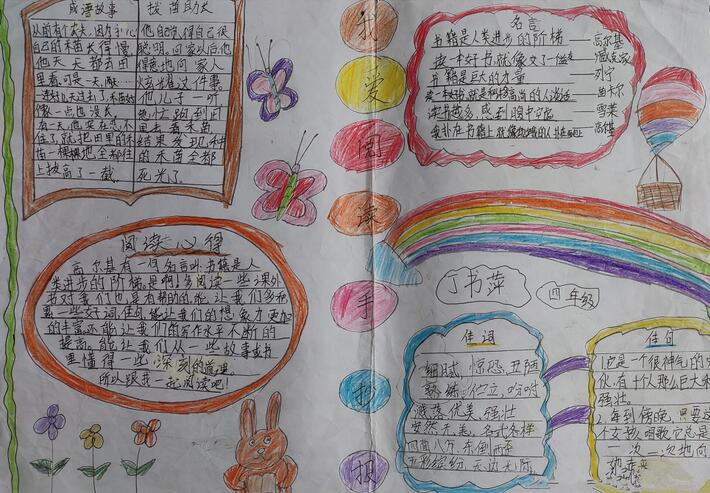 成语故事
拔苗助长
从前有个农夫,因为
自己的禾苗长得慢
他天天都去田
里看,可是一天,两天
过去了,禾苗好
像一点也没长
有一天,他实在忍不
住了,就把田里的禾
苗一棵棵地全都往
上拔高了一截。
他自以为得自己很
聪明,回家以后他
得意地向家人
炫耀这件事。
他儿子一听
急忙跑到田
里去看禾苗
结果发现种
的禾苗全都
死光了。
阅读心得
高尔基有一句名言叫书籍是人
类进步的阶梯,是啊!多阅读一些课外
书对我们也是有帮助的,能让我们多积
累一些好词佳句,能让我们的想象力更加
的丰富,还能让我们的写作水平不断的
提高。能让我们从一些故事或书
里懂得一些深刻的道理
所以跟我一起阅读吧!
我爱阅读手抄报
名言
书籍是人类进步的阶梯——高尔基
读一本好书,就像交了一个益友
书籍是巨大的力量——列宁
读一本好书,就是和高尚的人谈话——笛卡尔
雪莱
高惜
丁书萍
四年级
佳词
细腻、惊恐、丑陋
熟练、伫立、吩咐
溅落、优美、强壮
安然无恙、各式各样
四面八方、东倒西歪
五彩缤纷、无边无际
佳句
1、也是一个很神气的
伙,有十仗那么巨大和
强壮。
2、每到傍晚,只要这
个女孩唱歌,它总是
一次一次地向
她